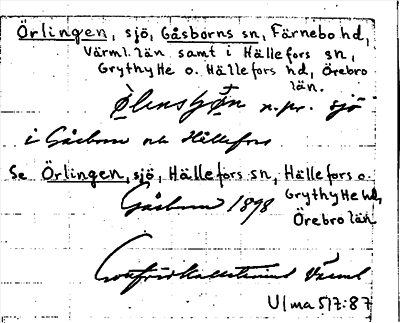 Örlingen, sjö, Gåsborns sn, Färnebo hd,
Värml. län samt i Hällefors sn,
Grythy He o. Hällefors hd, Örebro
län.
n. pr. sjö
i Gåsborn och Hällefors
Se Örlingen, sjö, Hällefors sn, Hällefors o.
Grythy He hd,
Gåsborn 1898
Örebro län
Värml
Ulma 517:87